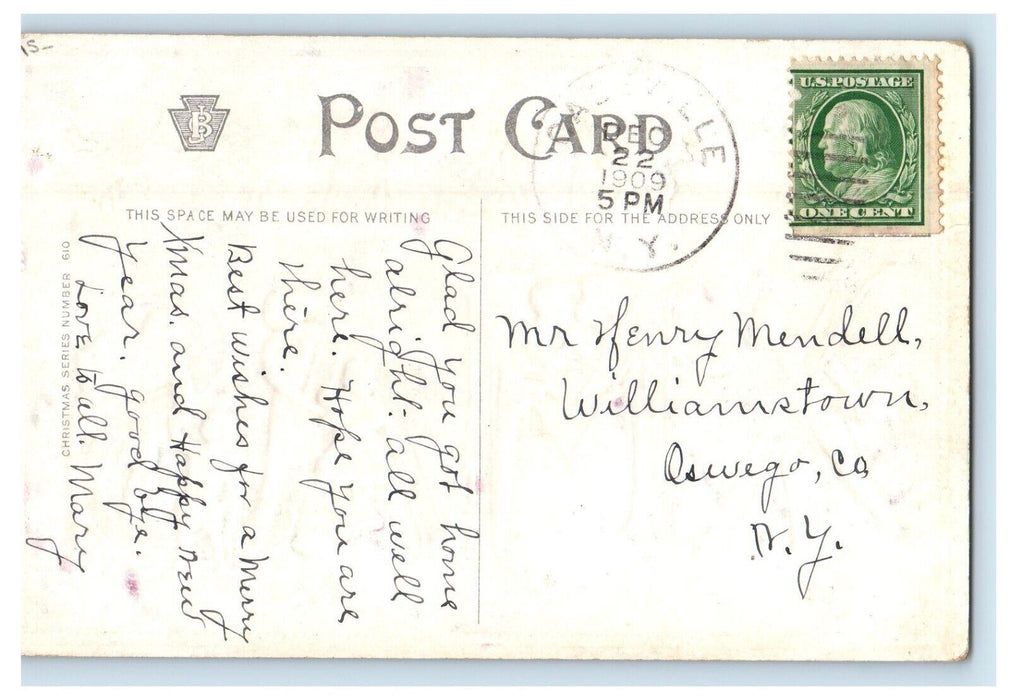 15-
POST CARD
DEC
22
1909
5 PM
N.Y.
U.S. POSTAGE
ONE CENT
THIS SPACE MAY BE USED FOR WRITING
THIS SIDE FOR THE ADDRESS ONLY
CHRISTMAS SERIES NUMBER 610
Glad you got home
alright. all well
here. Hope you are
there.
Best wishes for a Merry
Xmas. and Happy New
Year. good bye.
Love to all. Mary
Mr Henry Mendell,
Williamstown,
Oswego, Co
N.Y.